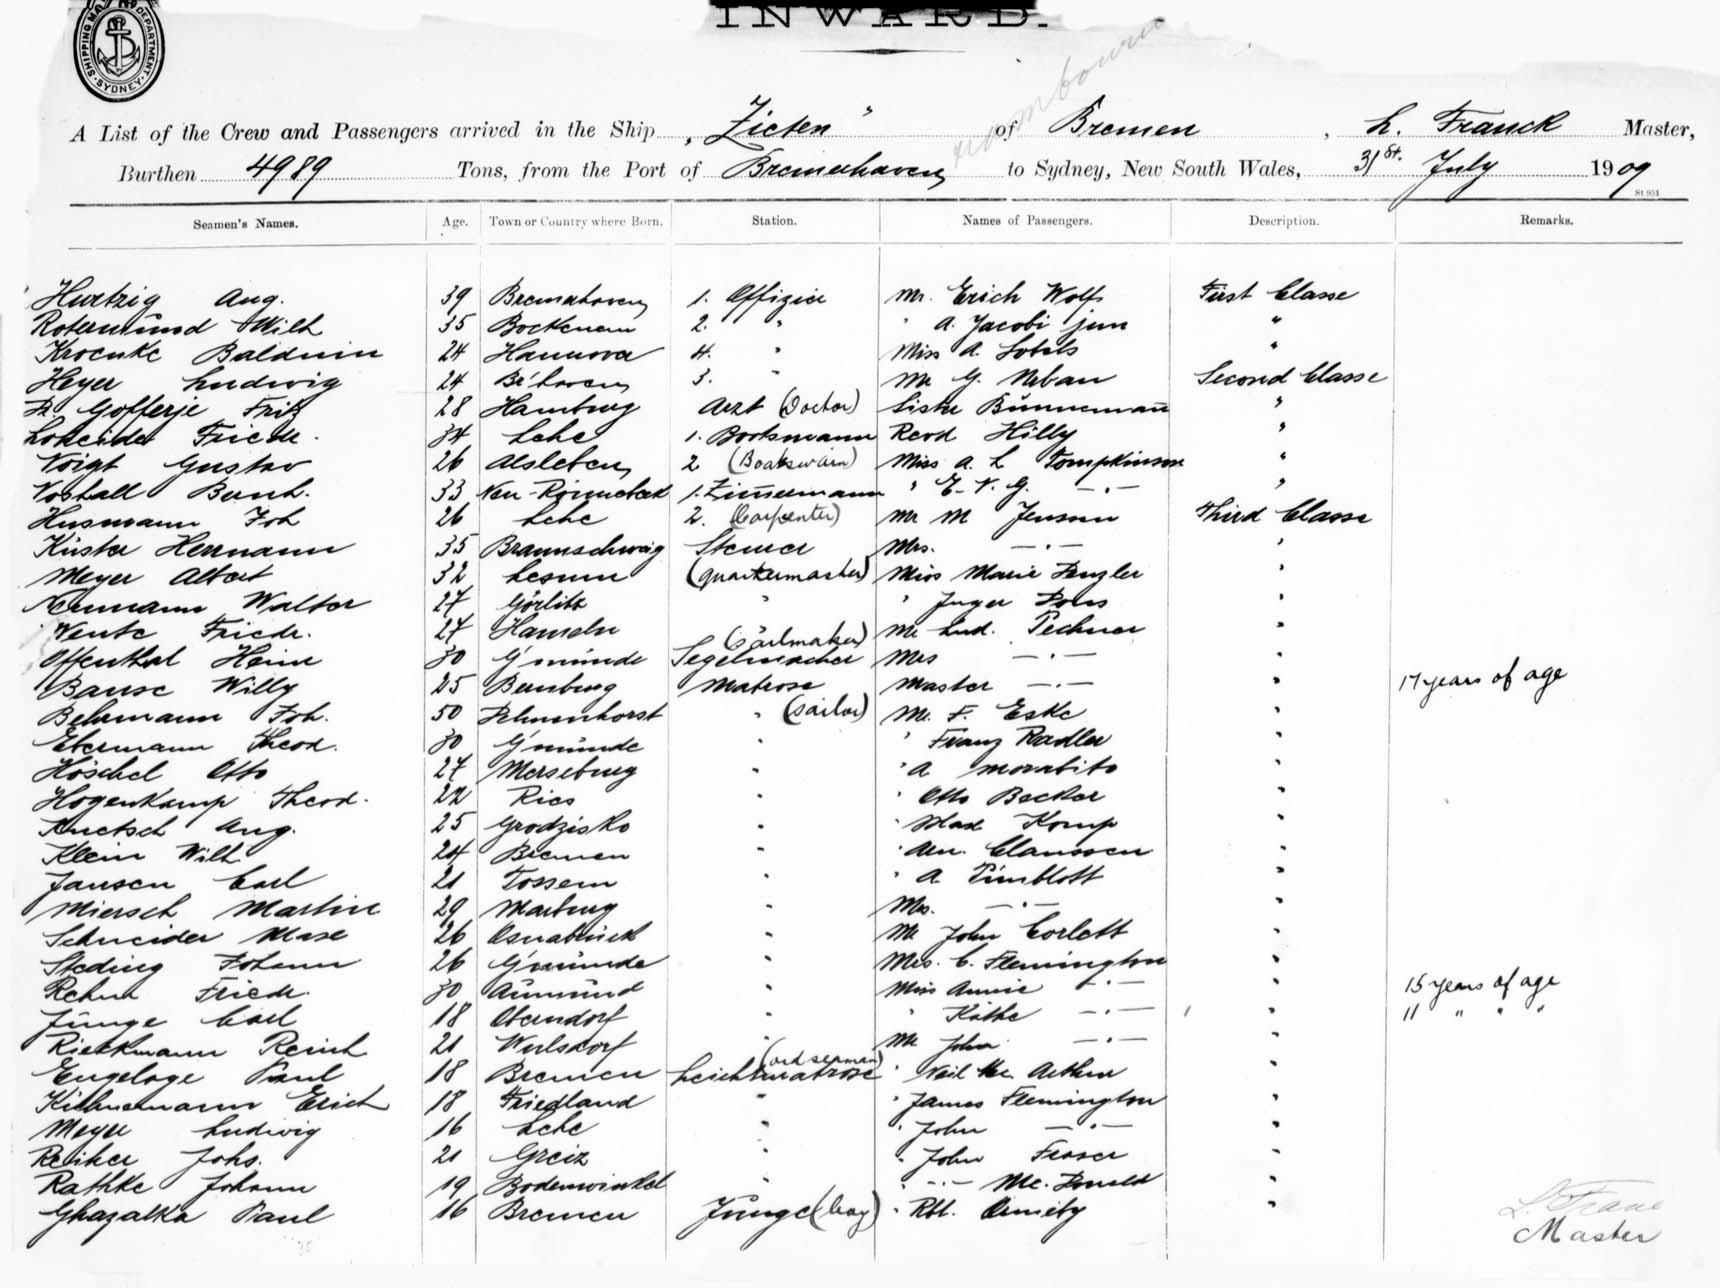 INWARD.
SHIPPING MA DEPARTMENT SYDNEY
A List of the Crew and Passengers arrived in the Ship „Zieten" of Bremen, L. Franck Master,
Burthen 4989 Tons, from the Port of Bremerhaven to Sydney, New South Wales, 31st. July 1909
St 951
Seamen's Names. Age. Town or Country where Born. Station. Names of Passengers. Description. Remarks.
Hurtzig Aug. 39 Bremerhaven 1. Offizier Mr. Erich Wolfs First Classe
Rotermund Wilh 35 Bockenem 2. " " A. Jacobi jun "
Kroenke Balduin 24 Hannover 4. " Miss A. "
Heyer Ludwig 24 Br'haven 3. " Mr G. Urban Second Classe
Dr. Gofferje Fritz 28 Hamburg Arzt (Doctor) Bünnemann "
Friedr. 34 Lehe 1. Bootsmann Revd Hilly "
Voigt Gustav 26 Alsleben 2 (Boatswain) Miss A. L Tompkinson "
Voshall Bernh. 33 Neu-Rönnebeck 1. Zimmermann " E. V. G. -·- "
Husmann Joh 26 Lehe 2. (Carpenter) Mr M Jensen Third Classe
Küster Hermann 35 Braunschweig Steurer Mrs. -·- "
Meyer Albert 32 Lesum (quartermaster) Miss Marie Denzler "
Neumann Walter 27 Görlitz " " "
Wente Friedr. 27 Hameln Mr Lud. Pechner "
Offenthal Heinr 30 G'münde Segelmacher (sailmaker) Mrs -·- "
Banse Willy 25 Bernburg Matrose Master -·- " 17 years of age
Behrmann Joh. 50 Delmenhorst " (sailor) Mr. F. Eske "
Ebermann Theod. 30 G'münde " " Franz Radler "
Höschel Otto 27 Merseburg " " A Morabito "
Hogenkamp Theod. 22 Ries " " Otto Becker "
Knetsch Aug. 25 Grodzisko " " Max Komp "
Klein Wilh 24 Bremen " " Claussen "
Jansen Carl 21 Tossem " " A Pimblott "
Miersch Martin 29 Marburg " Mrs. -·- "
Schneider Max 26 Osnabrück " Mr John Corlett "
Steding Johann 26 G'münde " Mrs. C. Flemington "
Rehm Friedr. 30 Aumund " Miss Annie -·- " 15 years of age
Junge Carl 18 Oberndorf " " Käthe -·- " 11 " " "
Rieckmann Reinh 21 Wulsdorf " Mr John -·- "
Engelage Paul 18 Bremen Leichtmatrose (ord seaman) " Neil Mc Arthur "
Erich 18 Friedland " " James Flemington "
Meyer Ludwig 16 Lehe " " John -·- "
Reiker Johs. 21 Greiz " " John Fraser "
Rathke Johann 19 Bodenwinkel " " -·- Mc. Donald "
Ghazalka Paul 16 Bremen Junge (boy) " Rbt. Ormsby "
L. Franc
Master